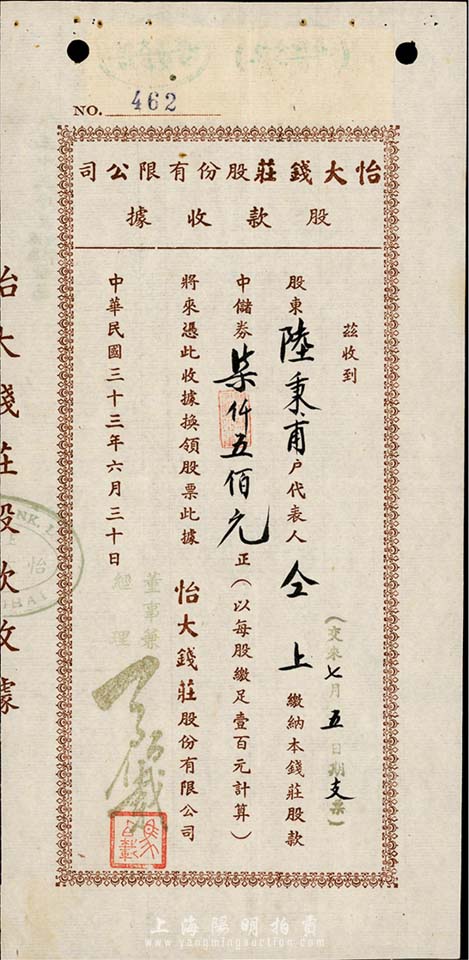 NO. 462
怡大錢莊股份有限公司
股款收據
茲收到
股東陸秉甫戶代表人仝上繳納本錢莊股款
(交來七月五日期支票)
中儲券柒仟五佰元正(以每股繳足壹百元計算)
將來憑此收據換領股票此據
怡大錢莊股份有限公司
董事兼
經理
中華民國三十三年六月三十日
怡大錢莊股款收據
上海陽明拍賣
www.yangmingauction.com